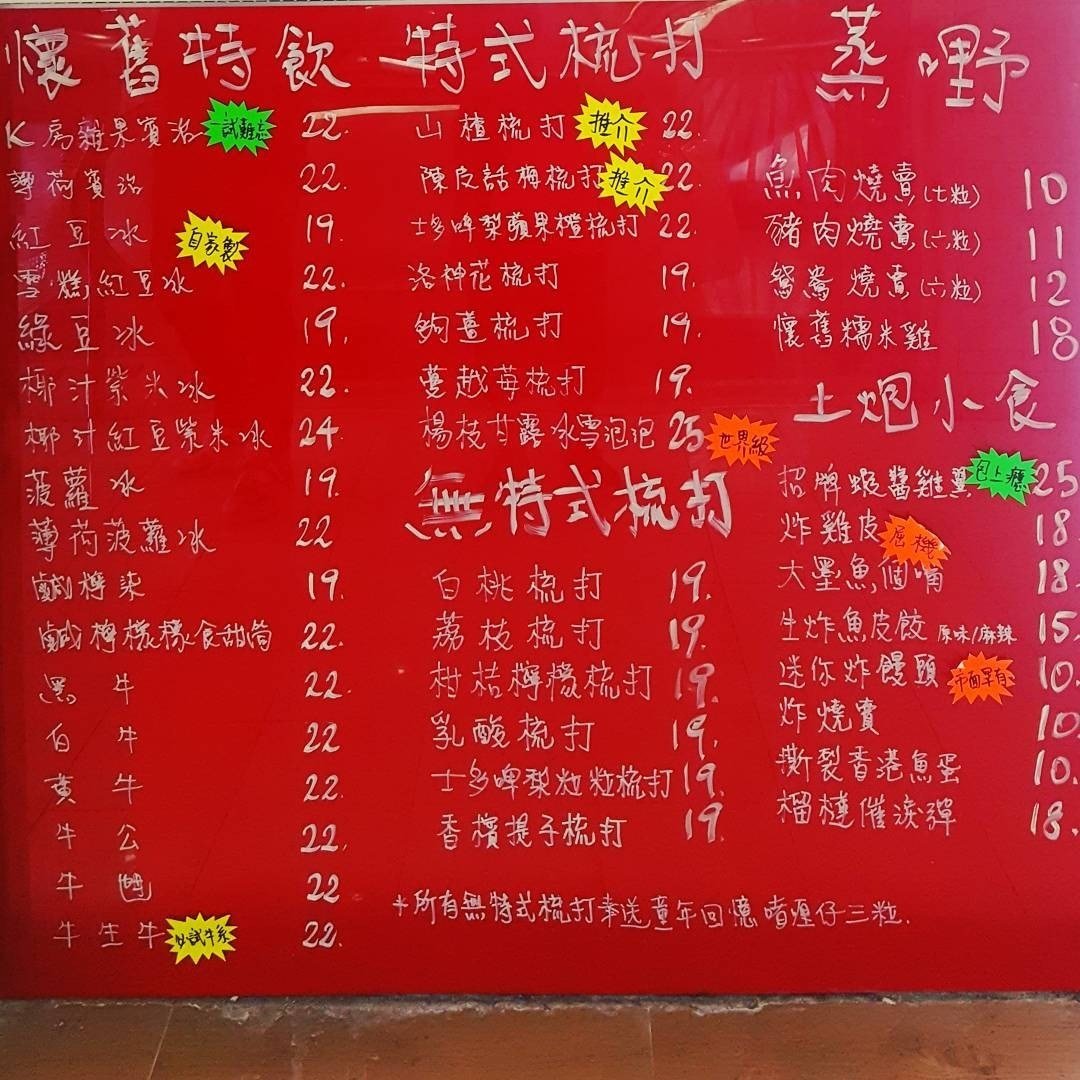 懷舊特飲
K房雜果賓治 一試難忘 22.
薄荷賓治 22.
紅豆冰 自家製 19.
雪糕紅豆冰 22.
綠豆冰 19.
椰汁紫米冰 22.
椰汁紅豆紫米冰 24.
菠蘿冰 19.
薄荷菠蘿冰 22
鹹檸柒 19.
鹹檸檬檬食甜筒 22.
黑牛 22.
白牛 22
黃牛 22.
牛公 22.
牛乸 22
牛生牛 必試牛系 22.
特式梳打
山楂梳打 推介 22.
陳皮話梅梳打 推介 22.
士多啤梨蘋果橙梳打 22.
洛神花梳打 19.
夠薑梳打 19.
蔓越莓梳打 19.
楊枝甘露冰雪泡泡 25 世界級
無特式梳打
白桃梳打 19.
荔枝梳打 19.
柑桔檸檬梳打 19.
乳酸梳打 19.
士多啤梨粒粒梳打 19.
香檳提子梳打 19.
*所有無特式梳打奉送童年回憶啫喱仔三粒.
蒸嘢
魚肉燒賣(七粒) 10
豬肉燒賣(六粒) 11
鴛鴦燒賣(六粒) 12
懷舊糯米雞 18
土炮小食
招牌蝦醬雞翼 包上癮 25
炸雞皮 屈機 18.
大墨魚個嘴 18.
生炸魚皮餃 原味/麻辣 15.
迷你炸饅頭 市面罕有 10.
炸燒賣 10.
撕裂香港魚蛋 10.
榴槤催淚彈 18.